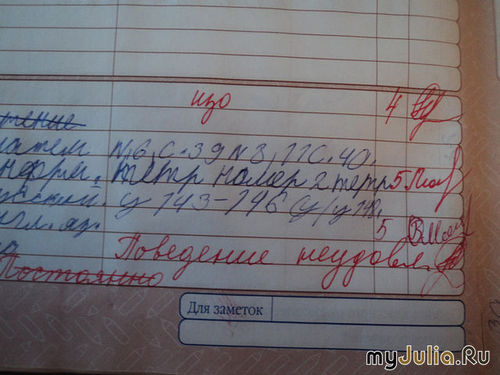 изо 4
чтение
матем N 6, С. 39 N 8, 11 С. 40.
информ. тетр номер 2 тетр 5
русский. у 143-146 у/у
англ. яз. 5
Поведение неудовл.
Постоянно
Для заметок
myJulia.Ru